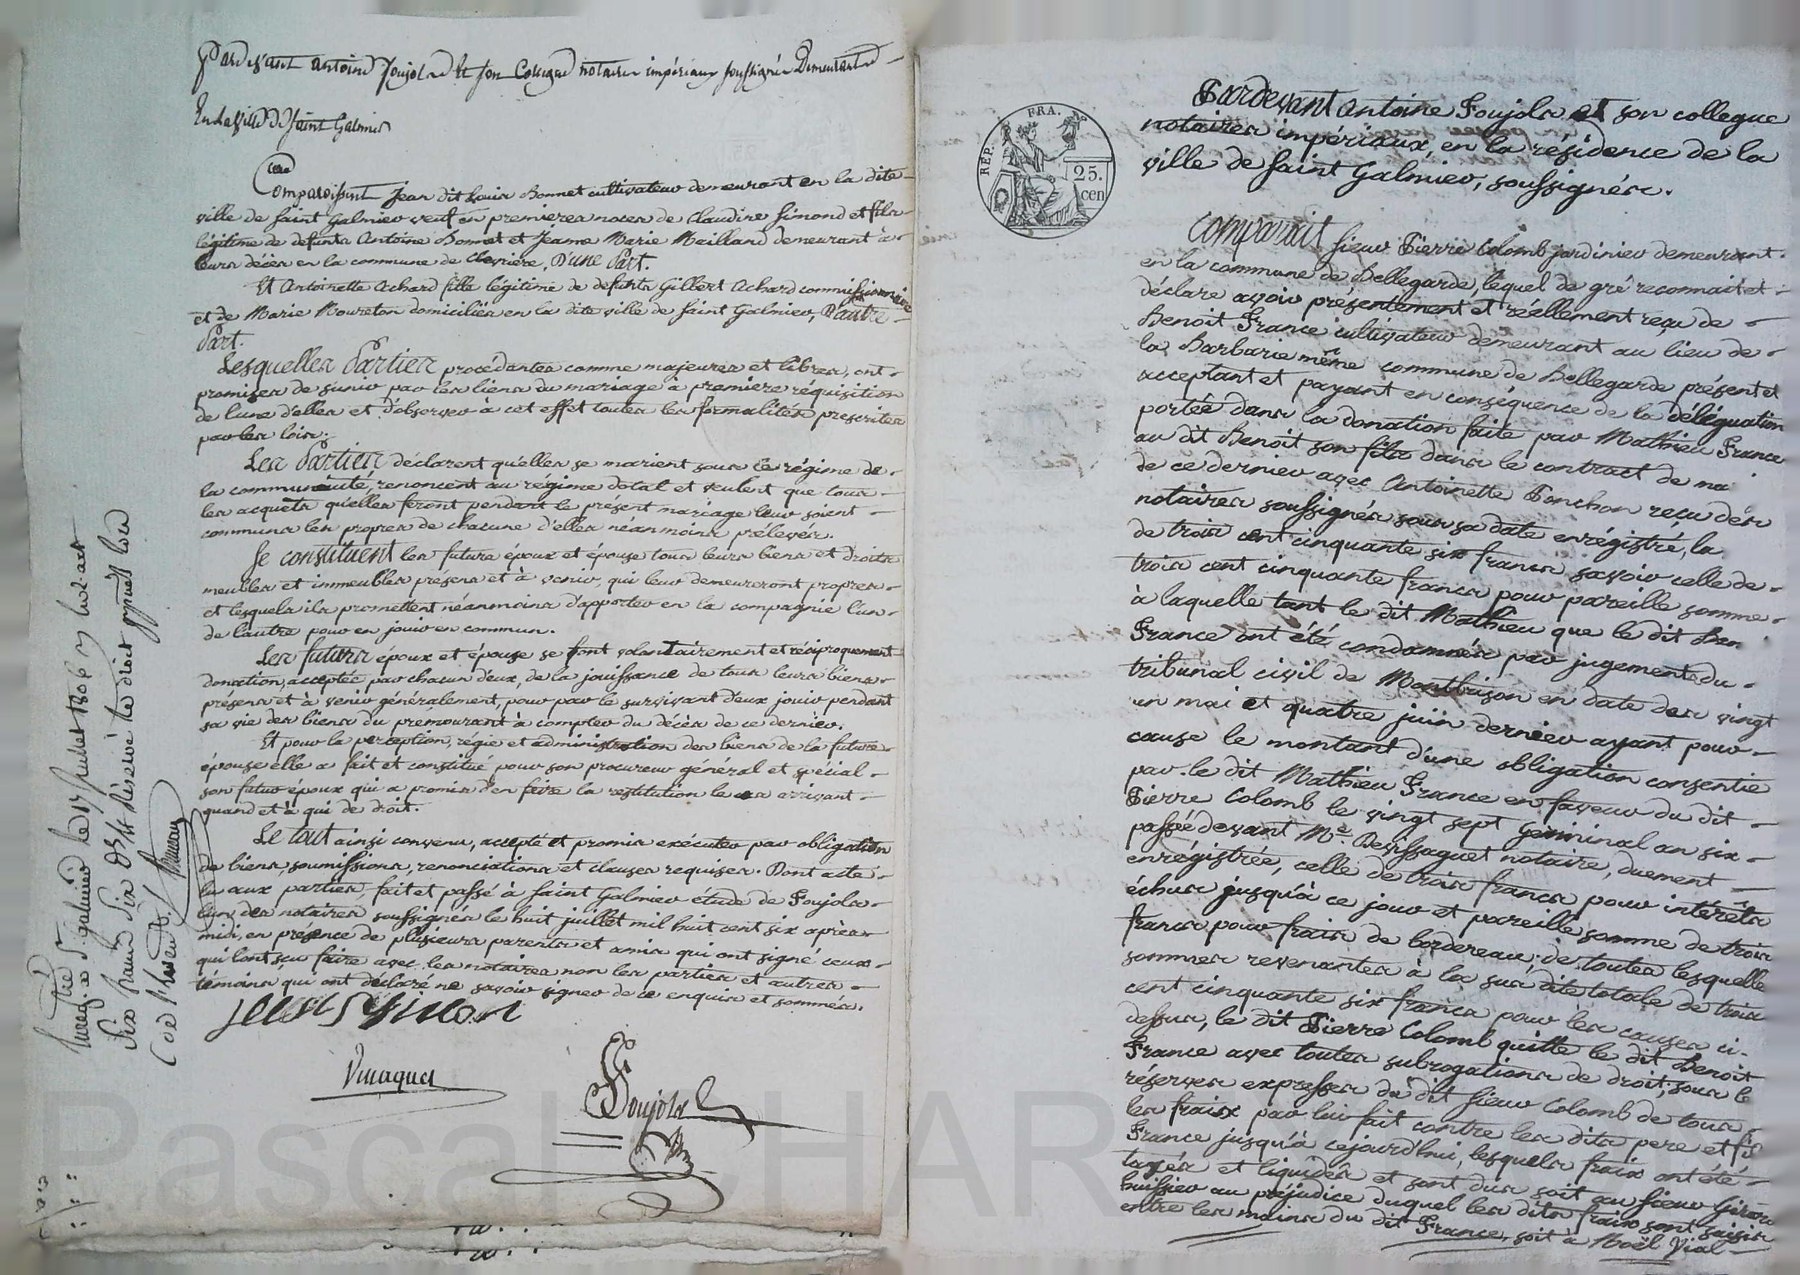 Pardevant Antoine Foujols et son Collegue notaires impériaux soussignés Demeurants
En la ville de Saint Galmier
Comparoissent Jean dit Louis Bonnet cultivateur demeurant en la dite
ville de Saint Galmier veuf en premieres noces de Claudine Simond et fils
légitime de defunts Antoine Bonnet et Jeanne Marie Mailland demeurant à
leurs décès en la commune de Cleviere, D'une Part.
Et Antoinette Achard fille légitime de defunts Gillert Achard commissionnaire
et de Marie Mourton domiciliés en la dite ville de Saint Galmier, D'autre
Part.
Lesquelles Parties procédantes comme majeures et libres, ont
promises de s'unir par les liens du mariage à premiere réquisition
de l'une d'elles et d'observer à cet effet toutes les formalités prescrites
par les lois.
Les Parties déclarent qu'elles se marient sous le régime de
la communauté, renoncent au régime dotal et veulent que tous
les acquets qu'elles feront pendant le présent mariage leur soient
communs les propres de chacune d'elles néanmoins prélevés.
Se constituent les future époux et épouse tous leurs biens et droits
meubles et immeubles présens et à venir, qui leur demeureront propres
et lesquels ils promettent néanmoins d'apporter en la compagnie l'un
de l'autre pour en jouir en commun.
Les futurs époux et épouse se font volontairement et réciproquement
donation, acceptée par chacun d'eux, de la jouissance de tous leurs biens
présens et à venir généralement, pour par le survivant d'eux jouir pendant
sa vie des biens du premourant à compter du décès de ce dernier.
Et pour la perception, régie et administration des biens de la future
épouse elle a fait et constitué pour son procureur général et spécial
son futur époux qui a promis d'en faire la restitution le cas arrivant
quand et à qui de droit.
Le tout ainsi convenu, accepté et promis exécuter par obligation
de biens, soumissions, renonciations et clauses requises. Dont acte
lu aux parties, fait et passé à Saint Galmier étude de Foujols
l'un des notaires soussignés le huit juillet mil huit cent six après
midi, en présence de plusieurs parents et amis qui ont signé ceux
qui l'ont scu faire avec les notaires non les parties et autres
témoins qui ont déclaré ne savoir signer de ce enquis et sommés.
Foujols
REP. FRA.
25.
cen
Pardevant Antoine Foujols et son collegue
notaires impériaux, en la résidence de la
ville de Saint Galmier, soussignés.
Comparait sieur Pierre Colomb jardinier demeurant
en la commune de Bellegarde, lequel de gré reconnait et
déclare avoir présentement et réellement reçu de
Benoit France cultivateur demeurant au lieu de
la Barbarie même commune de Bellegarde présent et
acceptant et payant en conséquence de la déléguation
portée dans la donation faite par Mathieu France
au dit Benoit son fils dans le contract de ma
de ce dernier avec Antoinette Ponchon reçu des
notaires soussignés sous sa date enrégistré, la
de trois cent cinquante six francs, savoir celle de
trois cent cinquante francs pour pareille somme
à laquelle tant le dit Mathieu que le dit Ben
France ont été condamnés par jugements du
tribunal civil de Montbrison en date des vingt
un mai et quatre juin dernier ayant pour
cause le montant d'une obligation consentie
par le dit Mathieu France en faveur du dit
Pierre Colomb le vingt sept Germinal an six
passée devant Me. Devissaguet notaire, duement
enrégistrée, celle de trois francs pour intérêts
échus jusqu'à ce jour et pareille somme de trois
francs pour frais de bordereau; de toutes lesquelles
sommes revenantes à la sus dite totale de trois
cent cinquante six francs pour les causes ci-
dessus, le dit Pierre Colomb quitte le dit Benoit
France avec toutes subrogations de droit, sous le
réserves expresses du dit sieur Colomb de tous
les fraix par lui fait contre les dits pere et fil
France jusqu'à cejourd'hui, lesquels fraix ont été
taxés et liquidés et sont dus soit au sieur Girard
huissier au préjudice duquel les dits fraix sont saisis
entre les mains du dit France, soit à Noël Vial
Pascal CHAR